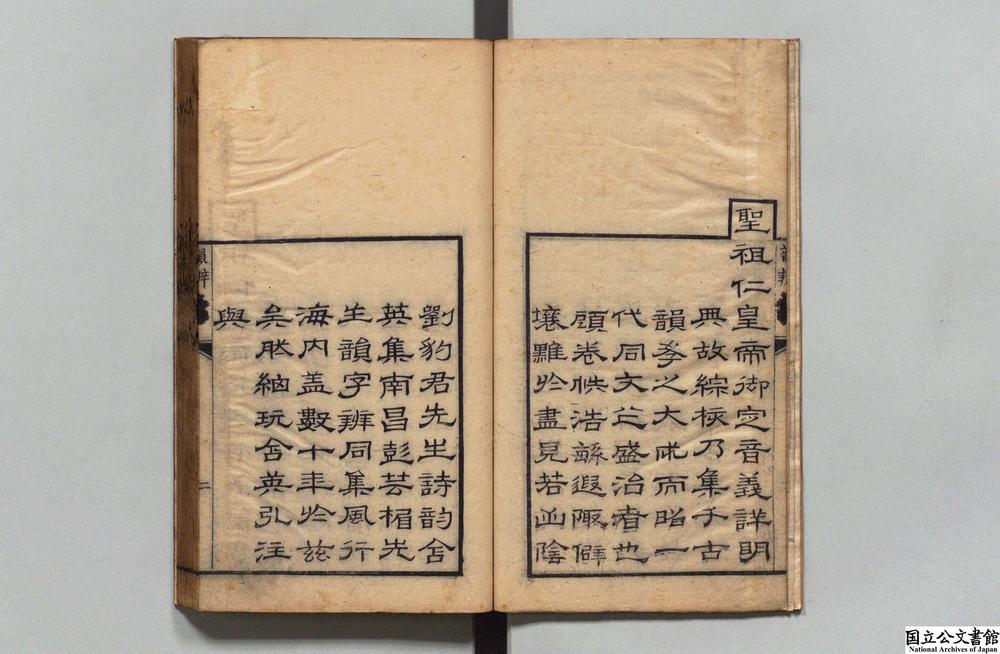 聖祖仁皇帝御定音義詳明
典故綜核乃集千古
韻學之大成而昭一
代同文之盛治者也
顧卷帙浩緐遐陬僻
壤難於盡見若山陰
劉豹君先生詩韵含
英集南昌彭芸楣先
生韻字辨同集風行
海内盖數十年於茲
矣然紬玩含英引注
與
二
国立公文書館
National Archives of Japan